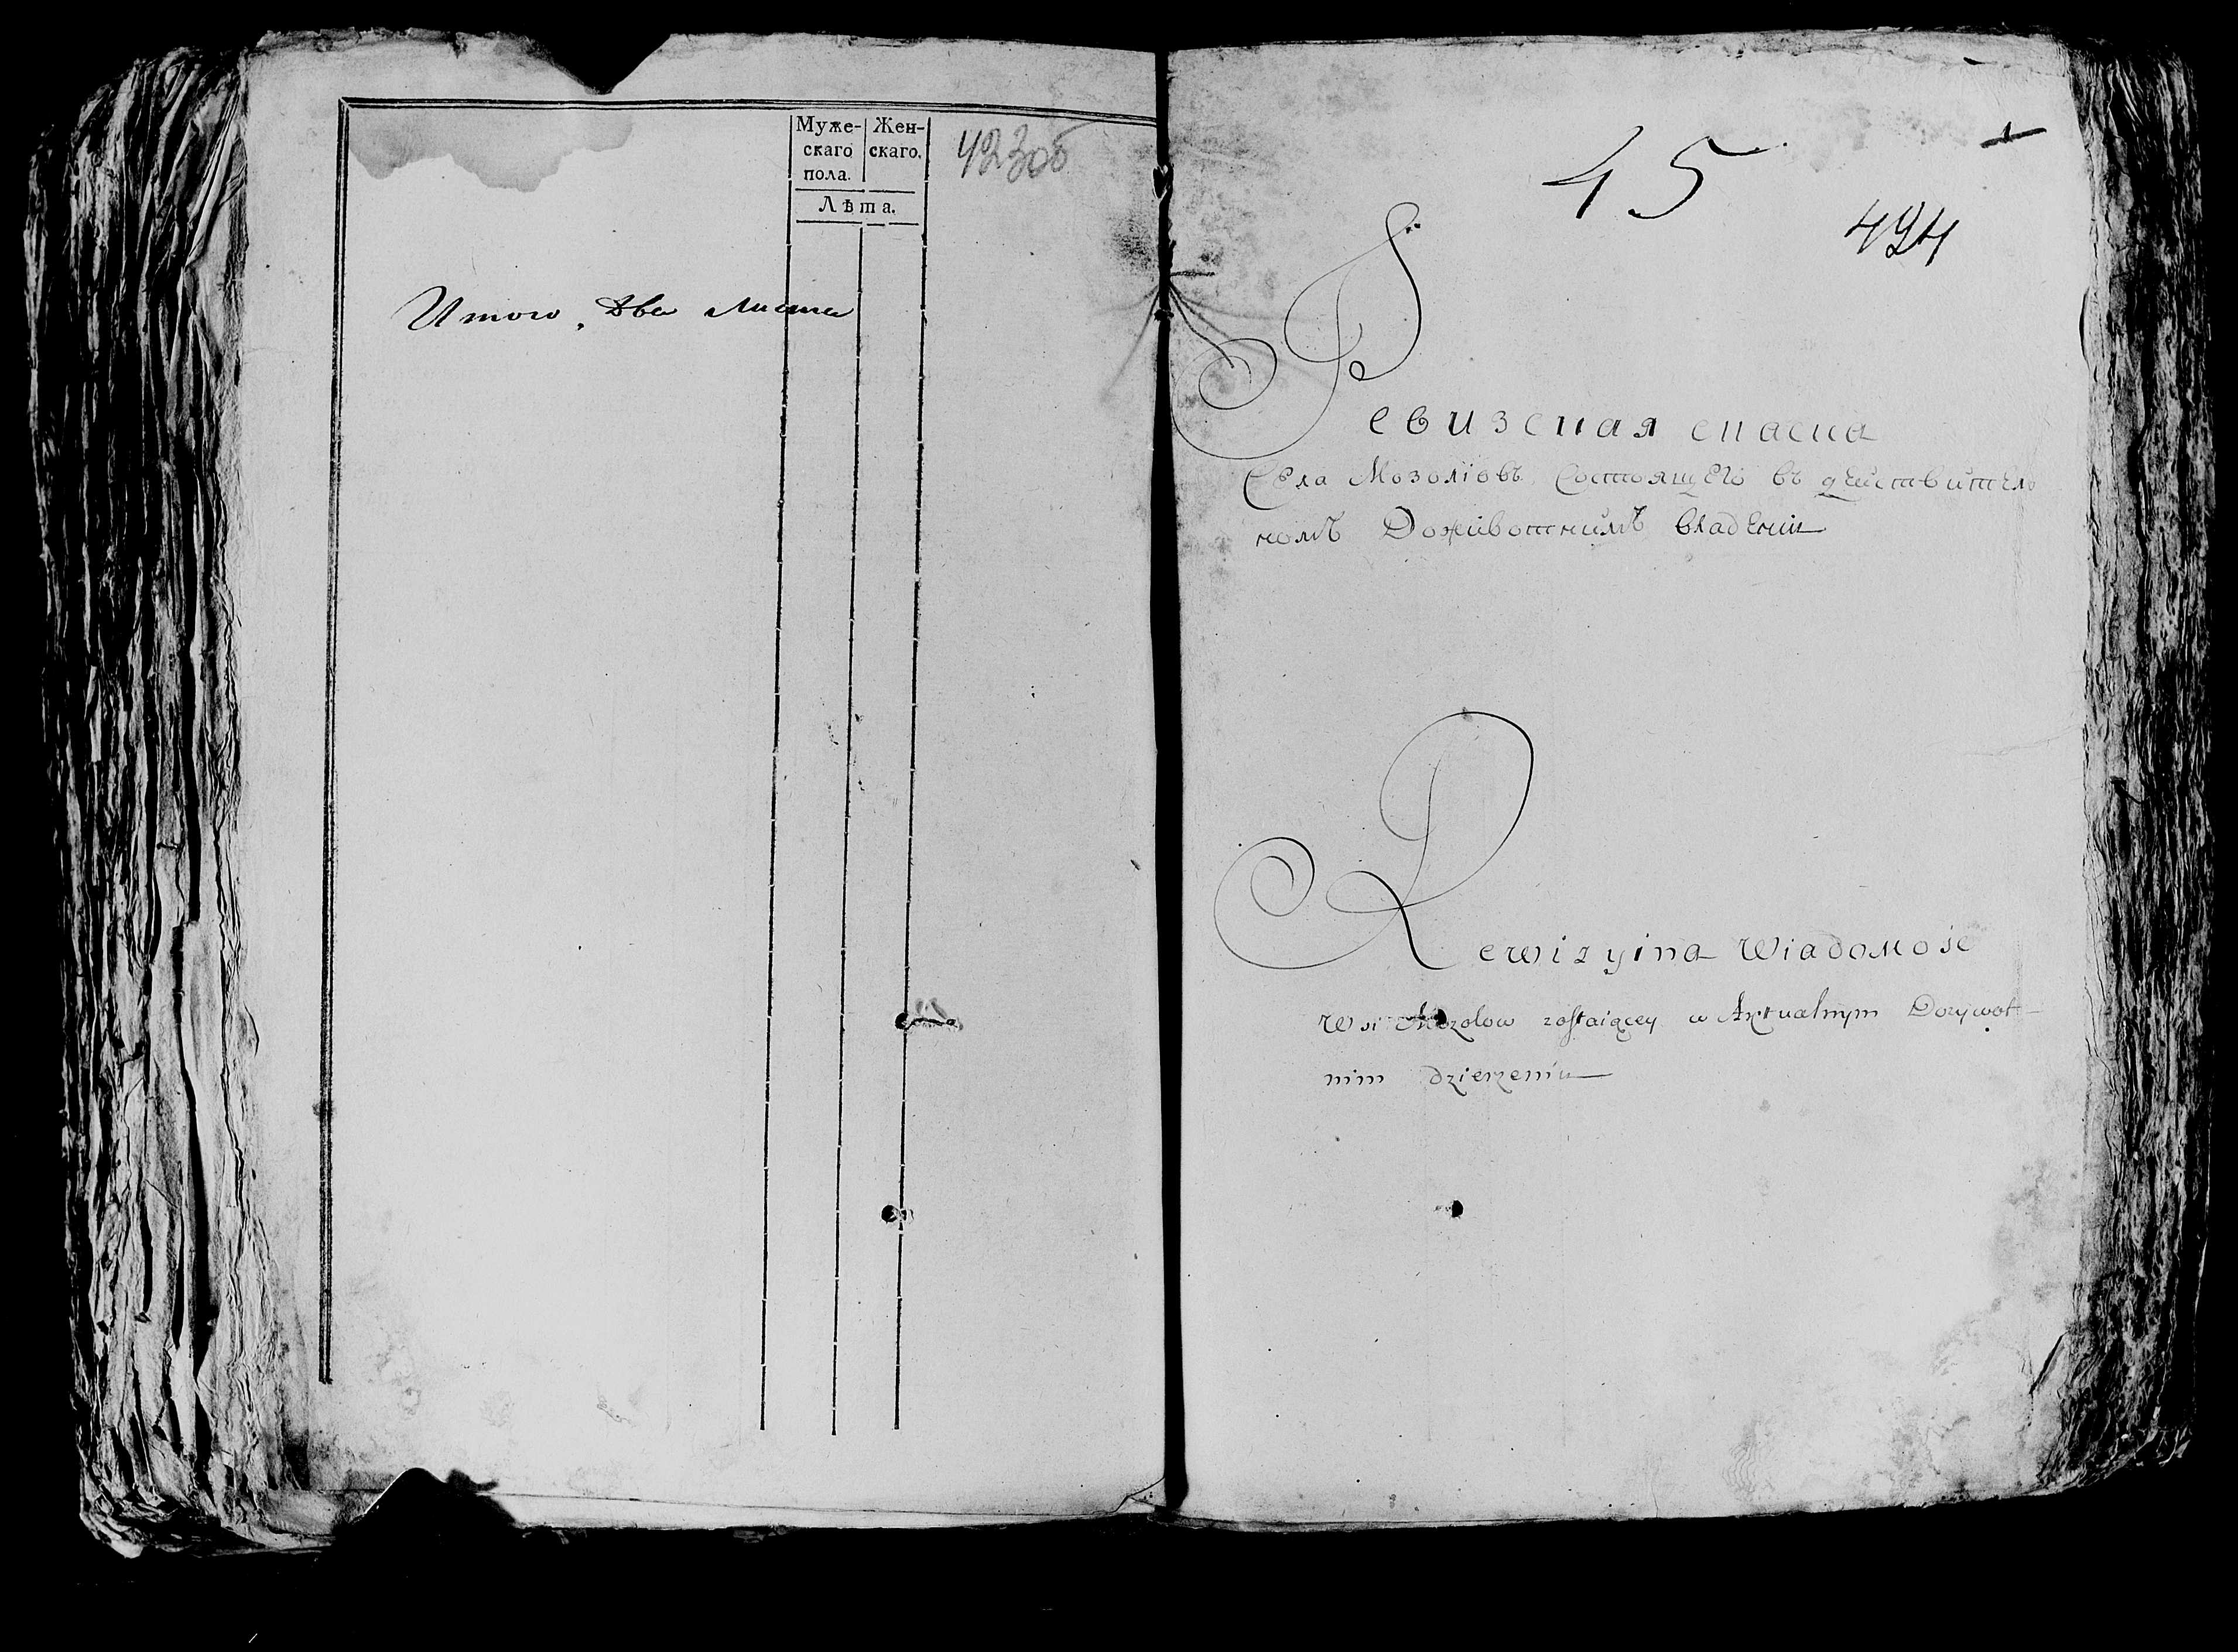 Муже-
скаго
пола.
Жен-
скаго.
Лѣта.
423об
Итого, два листа
45
424
Ревизская скаска
Села Мозоліовъ Состоящего въ действитель
номъ Доживотнимъ владении
Rewizyina Wiadomośc
Wsi Mozolow zostaiącey w Aktualnym Dozywot-
nim dzierzeniu